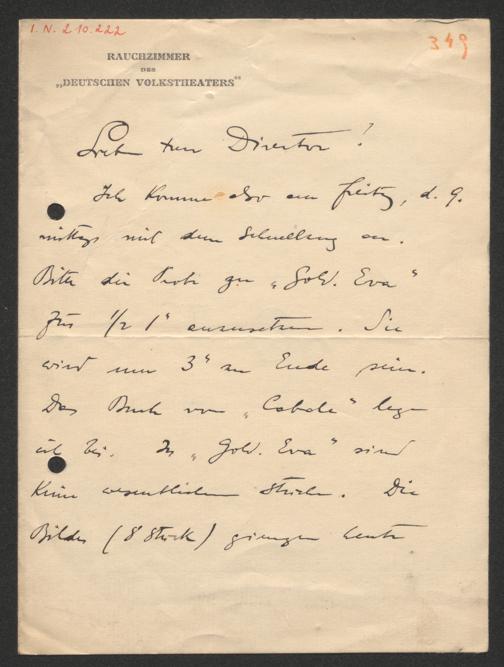 I. N. 210.222
349
RAUCHZIMMER
DES
„DEUTSCHEN VOLKSTHEATERS“
Lieber Herr Director!
Ich komme also am Freitag, d. 9.
mittags mit dem Schnellzug an.
Bitte die Probe zu „Gold. Eva“
für ½ 1ʰ anzusetzen. Sie
wird um 3ʰ zu Ende sein.
Das Buch von „Cabale“ lege
ich bei. In „Gold. Eva“ sind
keine wesentlichen Striche. Die
Bilder (8 Stück) giengen heute